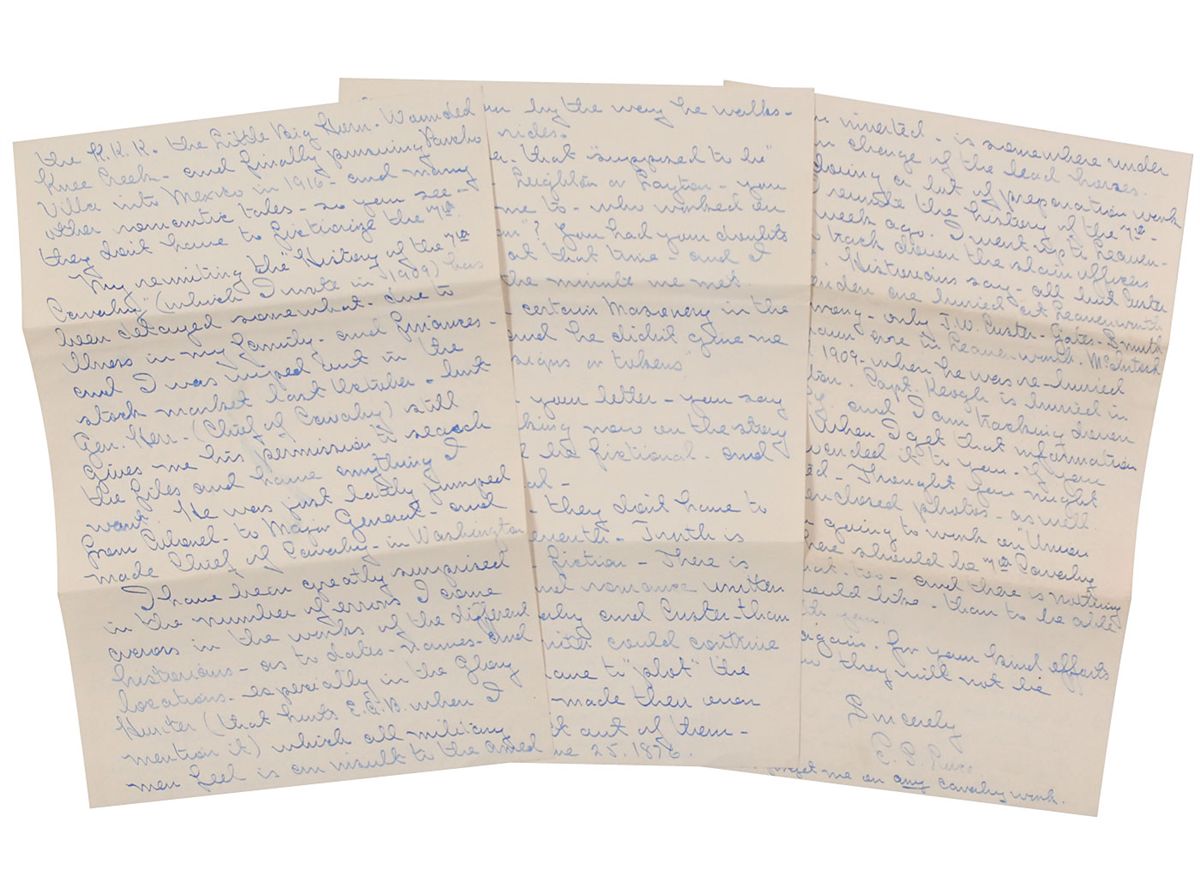 the K.K.K. the Little Big Horn. Wounded
Knee Creek - and finally pursuing Pancho
Villa into Mexico in 1916 - and many
other romantic tales - so you see -
they don't have to fictionize the 7th.
My rewriting the "History of the 7th
Cavalry" (which I wrote in 1909) has
been delayed somewhat due to
illness in my family - and finances -
and I was wiped out in the
stock market last October - but
Gen. Herr - (Chief of Cavalry) still
gives me his permission to search
the files and have anything I
want. He was just lately jumped
from Colonel - to Major General - and
made Chief of Cavalry - in Washington
I have been greatly surprised
in the number of errors I come
across in the works of the different
historians - as to dates - names - and
locations - especially in the Glory
Hunter (that hurts E.A.B. when I
mention it) which all military
men feel is an insult to the armed
by the way he walks -
rides.
that "supposed to be"
Leighton or Layton - you
me to - who worked on
? You had your doubts
at that time - and I
the minute we met.
certain Masonry in the
and he didn't give me
signs or tokens.
your letter - you say
king now on the story
be fictional - and
they don't have to
Seventh - Truth is
fiction - There is
romance written
and Custer - than
writer could contrive
have to "plot" the
made their own
out of them -
25. 1876.
inverted - is somewhere under
charge of the lead horses.
doing a lot of preparation work
rewrite the history of the 7th -
week ago. I went up to Leaven-
track down the slain officers
Historians say - all but Custer
are buried at Leavenworth
wrong - only T.W. Custer - Yates - Smith
are in Leavenworth. McIntosh
1909 - when he was re-buried
Capt. Keogh is buried in
and I am tracking down
When I get that information
send it to you - if you
Thought you might
enclosed photos - as well
going to work on Union
there should be 7th Cavalry
that too - and there is nothing
would like - than to be able
you.
again. for your kind efforts
they will not be
Sincerely
me on any cavalry work.